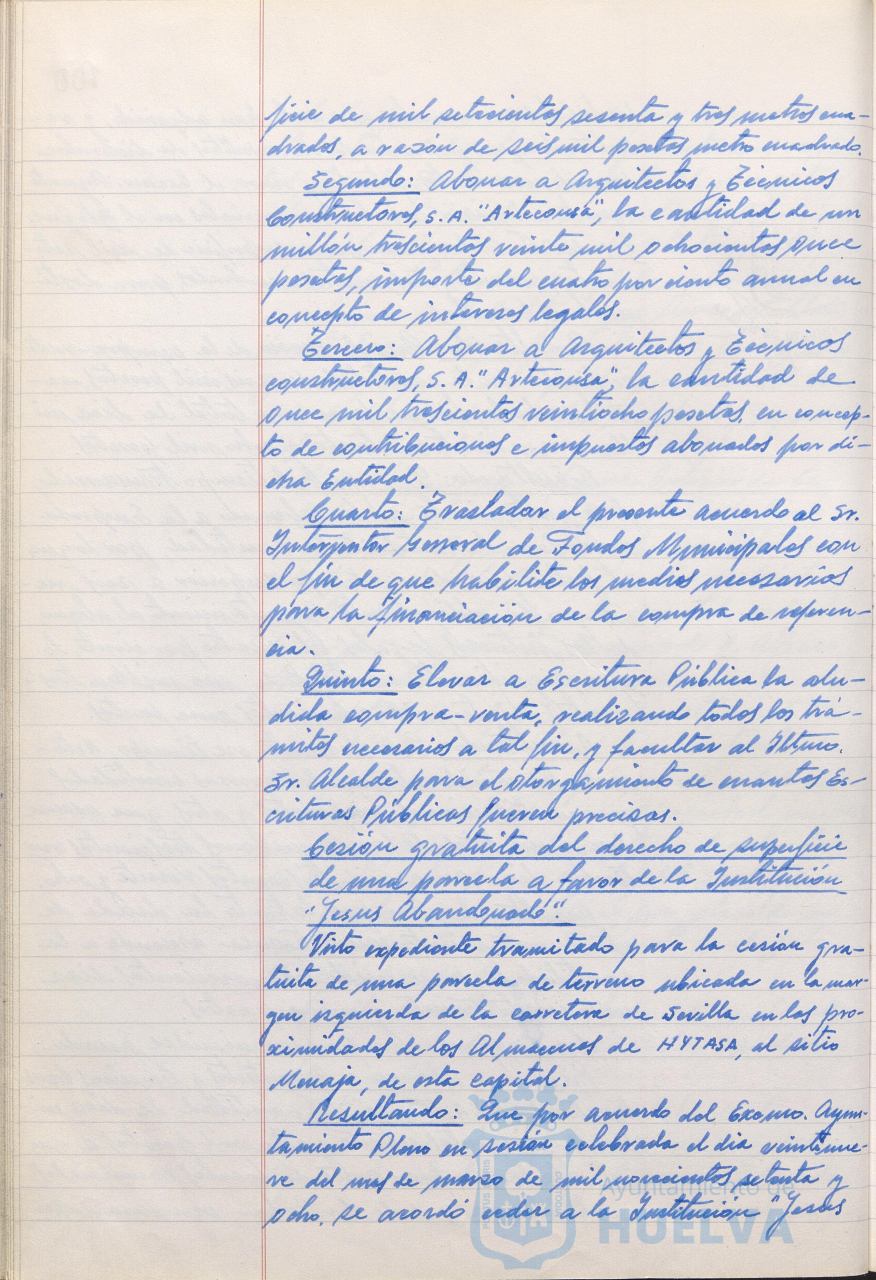 ficie de mil setecientos sesenta y tres metros cua-
drados, a razón de seis mil pesetas metro cuadrado.
Segundo: Abonar a Arquitectos y Técnicos
Constructores, S. A. "Arteconsa", la cantidad de un
millón trescientos veinte mil ochocientos once
pesetas, importe del cuatro por ciento anual en
concepto de intereses legales.
Tercero: Abonar a Arquitectos y Técnicos
constructores, S. A. "Arteconsa", la cantidad de
once mil trescientos veintiocho pesetas, en concep-
to de contribuciones e impuestos abonados por di-
cha Entidad.
Cuarto: Trasladar el presente acuerdo al Sr.
Interventor General de Fondos Municipales con
el fin de que habilite los medios necesarios
para la financiación de la compra de referen-
cia.
Quinto: Elevar a Escritura Pública la alu-
dida compra-venta, realizando todos los trá-
mites necesarios a tal fin, y facultar al Iltmo.
Sr. Alcalde para el otorgamiento de cuantas Es-
crituras Públicas fueren precisas.
Cesión gratuita del derecho de superficie
de una parcela a favor de la Institución
"Jesus Abandonado".
Visto expediente tramitado para la cesión gra-
tuita de una parcela de terreno ubicada en la mar-
gen izquierda de la carretera de Sevilla en las pro-
ximidades de los Almacenes de HYTASA, al sitio
Menaja, de esta capital.
Resultando: Que por acuerdo del Excmo. Ayun-
tamiento Pleno en sesión celebrada el dia veintinue-
ve del mes de marzo de mil novecientos setenta y
ocho, se acordó ceder a la Institución "Jesus
Ayuntamiento de
HUELVA